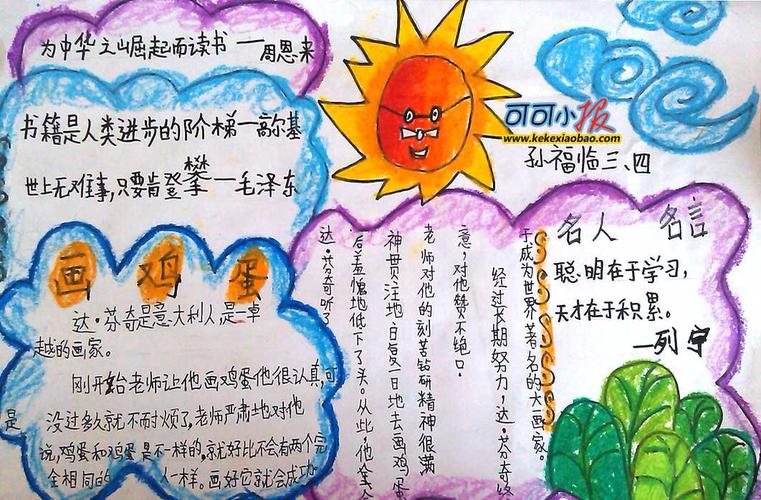 为中华之崛起而读书 一周恩来
书籍是人类进步的阶梯一高尔基
世上无难事,只要肯登攀一毛泽东
可可小报
www.kekexiaobao.com
孙福临三、四
画鸡蛋
达·芬奇是意大利人,是一卓
越的画家。
刚开始老师让他画鸡蛋他很认真,可
是没过多久就不耐烦了,老师严肃地对他
说,鸡蛋和鸡蛋是不一样的,就好比不会有两个完
全相同的 一样。画好它就会成功
达·芬奇听了
后羞愧地低下了头。从此,他全
神贯注地日复一日地去画鸡蛋
老师对他的刻苦钻研精神很满
意,对他赞不绝口。
经过长期努力,达·芬奇终
于成为世界著名的大画家。
名人 名言
聪明在于学习,
天才在于积累。
一列宁